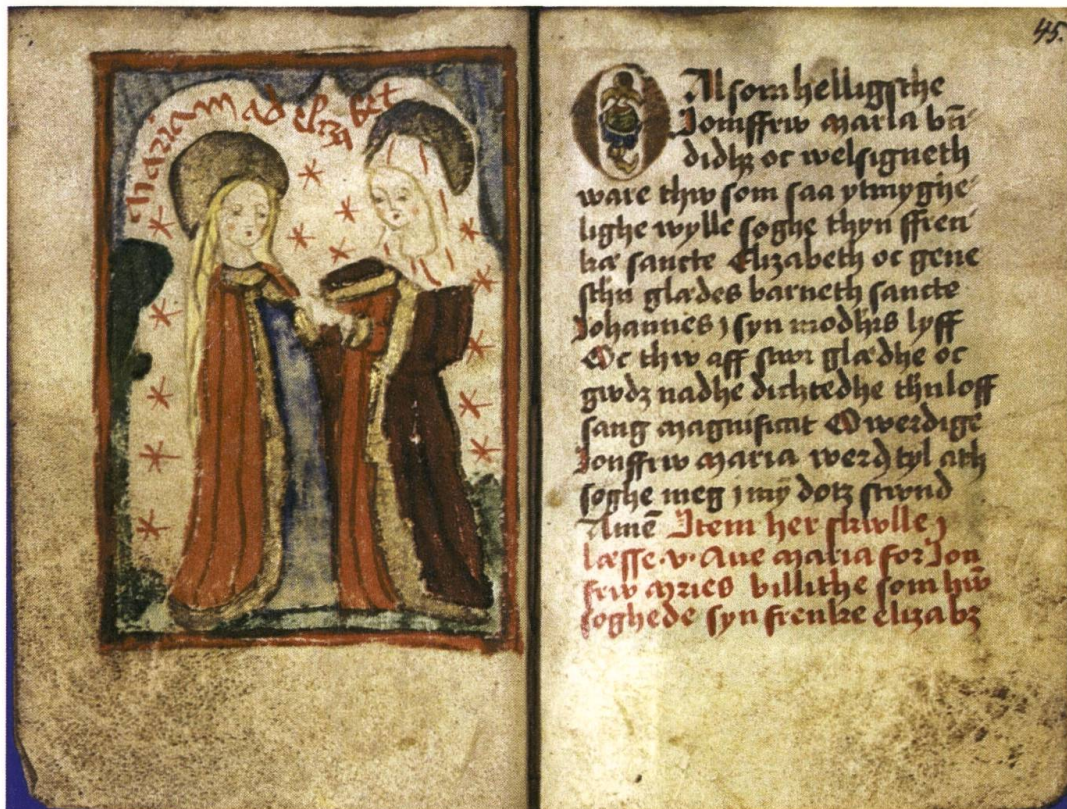 mariam ad elizabet
45.
O Alsom helligsthe
Jomffrw maria bñ
didhz oc welsigneth
ware thw som saa ytmyghe
lighe wylle søghe thyn ffren
kæ sancte Elizabeth oc gene
sthn glædes barneth sancte
Johannes j syn modhrs lyff
Oc thw aff stwr glædhe oc
gwdz nadhe dichtedhe thnloff
sang magnificat O werdige
Jonffrw maria werd tyl ath
søghe meg j my̅ dotz stwnd
Ame̅ Jtem her skwlle j
læsse .v. Aue maria for Jon
frw mries billithe som hw̅
soghede syn frenke elizabz